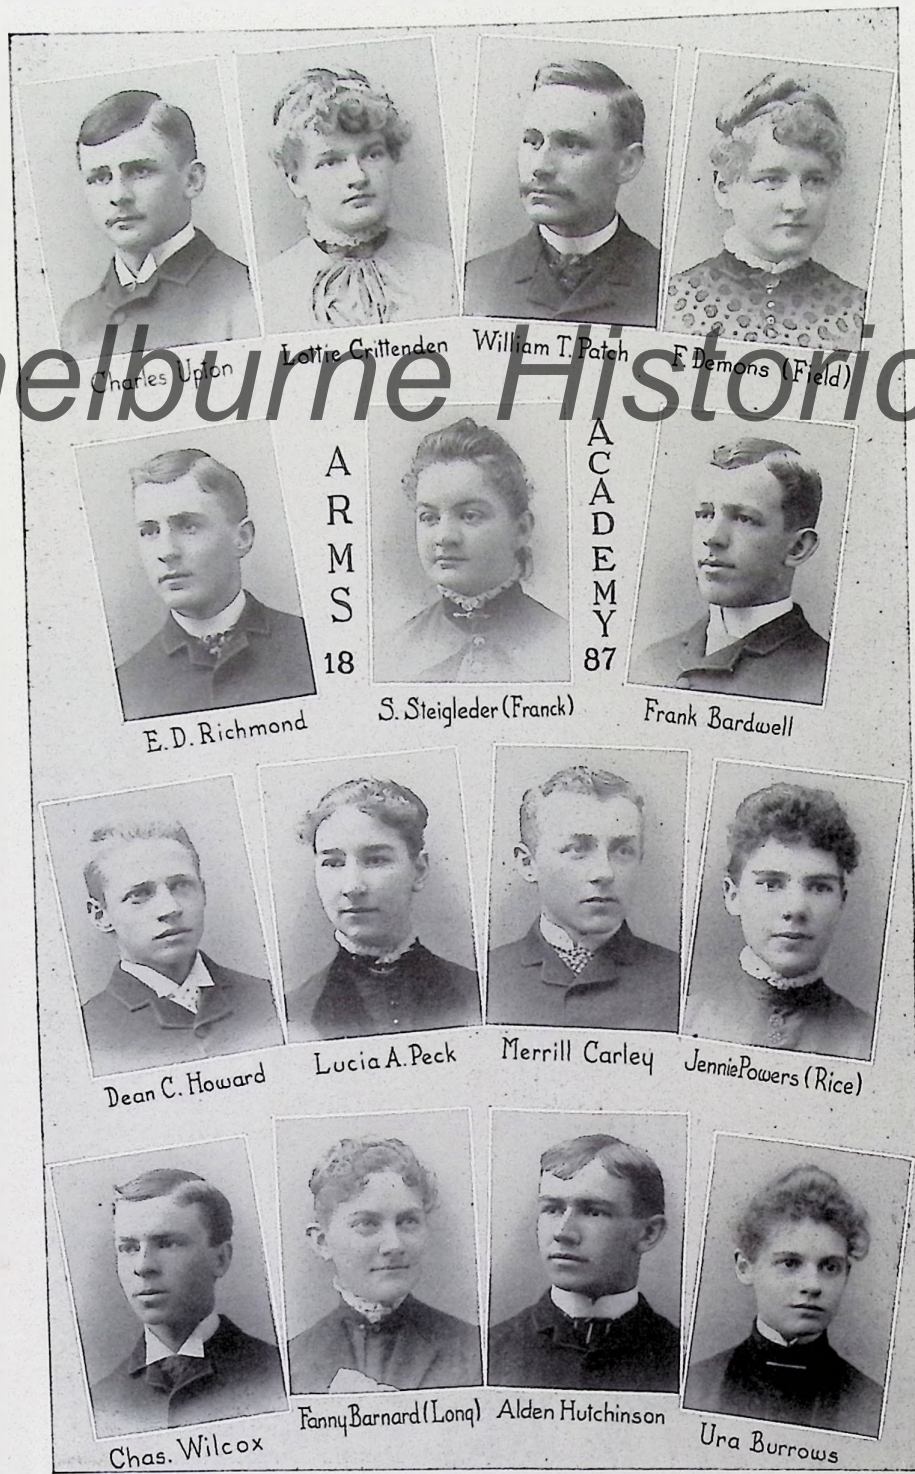 Charles Upton
Lottie Crittenden
William T. Patch
F. Demons (Field)
elburne Historic
ARMS
18
ACADEMY
87
E. D. Richmond
S. Steigleder (Franck)
Frank Bardwell
Dean C. Howard
Lucia A. Peck
Merrill Carley
Jennie Powers (Rice)
Chas. Wilcox
Fanny Barnard (Long)
Alden Hutchinson
Ura Burrows